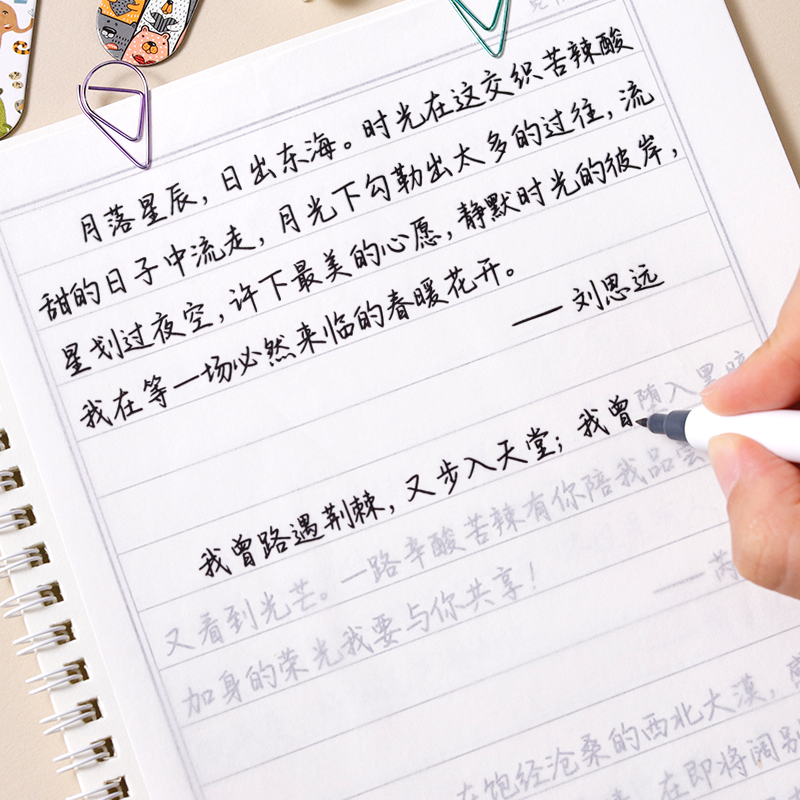 月落星辰，日出东海。时光在这交织苦辣酸
甜的日子中流走，月光下勾勒出太多的过往，流
星划过夜空，许下最美的心愿，静默时光的彼岸，
我在等一场必然来临的春暖花开。
—— 刘思远
我曾路遇荆棘，又步入天堂；我曾堕入黑暗
又看到光芒。一路辛酸苦辣有你陪我品尝
加身的荣光我要与你共享！
—— 芮
在饱经沧桑的西北大漠，
在即将阔别